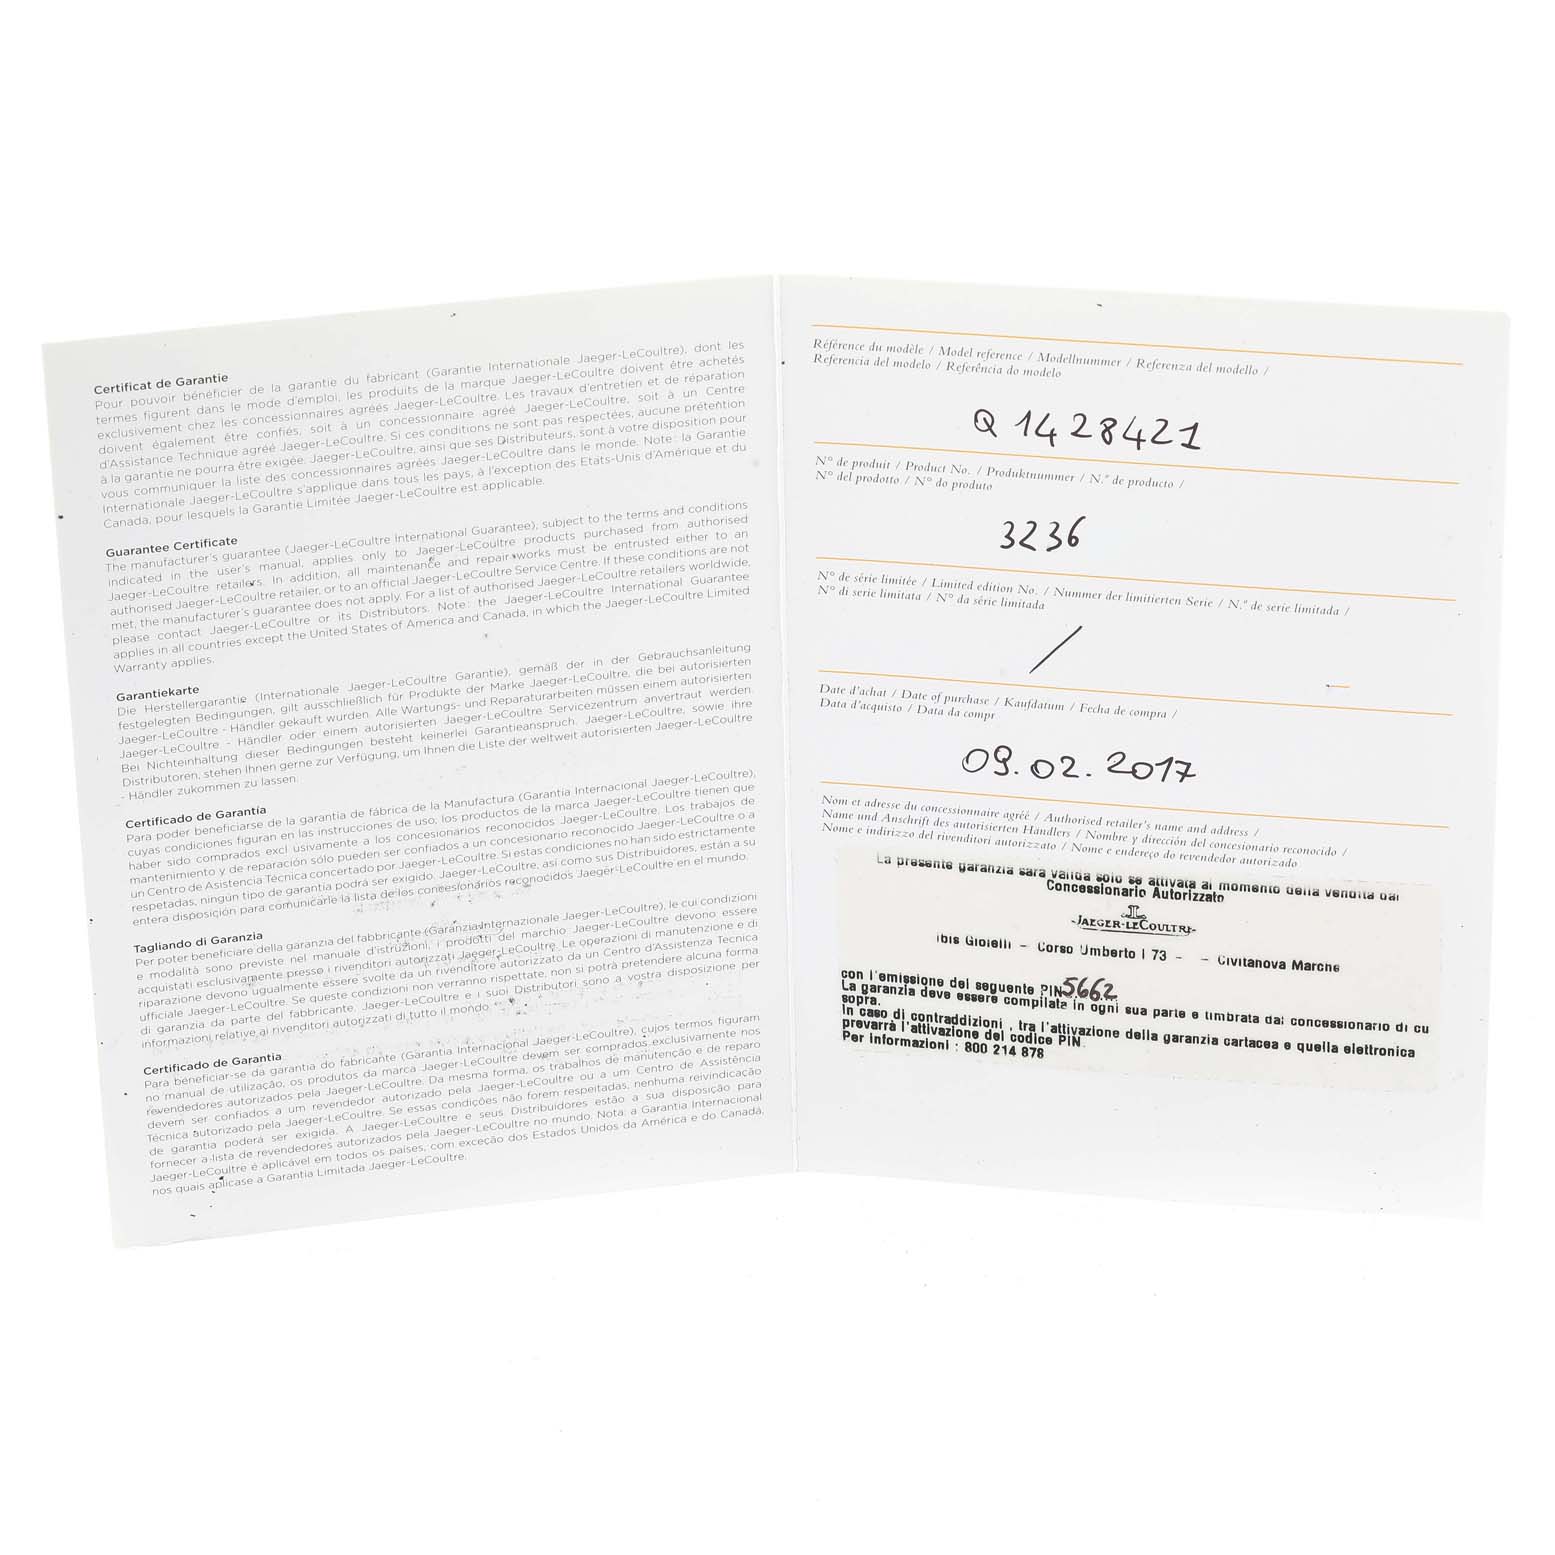 Certificat de Garantie
Pour pouvoir bénéficier de la garantie du fabricant (Garantie Internationale Jaeger-LeCoultre), dont les
termes figurent dans le mode d'emploi, les produits de la marque Jaeger-LeCoultre doivent être achetés
exclusivement chez les concessionnaires agréés Jaeger-LeCoultre. Les travaux d'entretien et de réparation
doivent également être confiés, soit à un concessionnaire agréé Jaeger-LeCoultre, soit à un Centre
d'Assistance Technique agréé Jaeger-LeCoultre. Si ces conditions ne sont pas respectées, aucune prétention
à la garantie ne pourra être exigée. Jaeger-LeCoultre, ainsi que ses Distributeurs, sont à votre disposition pour
vous communiquer la liste des concessionnaires agréés Jaeger-LeCoultre dans le monde. Note : la Garantie
Internationale Jaeger-LeCoultre s'applique dans tous les pays, à l'exception des Etats-Unis d'Amérique et du
Canada, pour lesquels la Garantie Limitée Jaeger-LeCoultre est applicable.
Guarantee Certificate
The manufacturer's guarantee (Jaeger-LeCoultre International Guarantee), subject to the terms and conditions
indicated in the user's manual, applies only to Jaeger-LeCoultre products purchased from authorised
Jaeger-LeCoultre retailers. In addition, all maintenance and repair works must be entrusted either to an
authorised Jaeger-LeCoultre retailer, or to an official Jaeger-LeCoultre Service Centre. If these conditions are not
met, the manufacturer's guarantee does not apply. For a list of authorised Jaeger-LeCoultre retailers worldwide,
please contact Jaeger-LeCoultre or its Distributors. Note : the Jaeger-LeCoultre International Guarantee
applies in all countries except the United States of America and Canada, in which the Jaeger-LeCoultre Limited
Warranty applies.
Garantiekarte
Die Herstellergarantie (Internationale Jaeger-LeCoultre Garantie), gemäß der in der Gebrauchsanleitung
festgelegten Bedingungen, gilt ausschließlich für Produkte der Marke Jaeger-LeCoultre, die bei autorisierten
Jaeger-LeCoultre - Händler gekauft wurden. Alle Wartungs- und Reparaturarbeiten müssen einem autorisierten
Jaeger-LeCoultre - Händler oder einem autorisierten Jaeger-LeCoultre Servicezentrum anvertraut werden.
Bei Nichteinhaltung dieser Bedingungen besteht keinerlei Garantieanspruch. Jaeger-LeCoultre, sowie ihre
Distributoren, stehen Ihnen gerne zur Verfügung, um Ihnen die Liste der weltweit autorisierten Jaeger-LeCoultre
- Händler zukommen zu lassen.
Certificado de Garantía
Para poder beneficiarse de la garantía de fábrica de la Manufactura (Garantía Internacional Jaeger-LeCoultre),
cuyas condiciones figuran en las instrucciones de uso, los productos de la marca Jaeger-LeCoultre tienen que
haber sido comprados excl usivamente a los concesionarios reconocidos Jaeger-LeCoultre. Los trabajos de
mantenimiento y de reparación sólo pueden ser confiados a un concesionario reconocido Jaeger-LeCoultre o a
un Centro de Asistencia Técnica concertado por Jaeger-LeCoultre. Si estas condiciones no han sido estrictamente
respetadas, ningún tipo de garantía podrá ser exigido. Jaeger-LeCoultre, así como sus Distribuidores, están a su
entera disposición para comunicarle la lista de los concesionários reconocidos Jaeger-LeCoultre en el mundo.
Tagliando di Garanzia
Per poter beneficiare della garanzia del fabbricante (Garanzia Internazionale Jaeger-LeCoultre), le cui condizioni
e modalità sono previste nel manuale d'istruzioni, i prodotti del marchio Jaeger-LeCoultre devono essere
acquistati esclusivamente presso i rivenditori autorizzati Jaeger-LeCoultre. Le operazioni di manutenzione e di
riparazione devono ugualmente essere svolte da un rivenditore autorizzato da un Centro d'Assistenza Tecnica
ufficiale Jaeger-LeCoultre. Se queste condizioni non verranno rispettate, non si potrà pretendere alcuna forma
di garanzia da parte del fabbricante. Jaeger-LeCoultre e i suoi Distributori sono a vostra disposizione per
informazioni relative ai rivenditori autorizzati di tutto il mondo
Certificado de Garantia
Para beneficiar-se da garantia do fabricante (Garantia Internacional Jaeger-LeCoultre), cujos termos figuram
no manual de utilização, os produtos da marca Jaeger-LeCoultre devem ser comprados exclusivamente nos
revendedores autorizados pela Jaeger-LeCoultre. Da mesma forma, os trabalhos de manutenção e de reparo
devem ser confiados a um revendedor autorizado pela Jaeger-LeCoultre ou a um Centro de Assistência
Técnica autorizado pela Jaeger-LeCoultre. Se essas condições não forem respeitadas, nenhuma reivindicação
de garantia poderá ser exigida. A Jaeger-LeCoultre e seus Distribuidores estão a sua disposição para
fornecer a lista de revendedores autorizados pela Jaeger-LeCoultre no mundo. Nota: a Garantia Internacional
Jaeger-LeCoultre é aplicável em todos os países, com exceção dos Estados Unidos da América e do Canadá,
nos quais aplicase a Garantia Limitada Jaeger-LeCoultre.
Référence du modèle / Model reference / Modellnummer / Referenza del modello /
Referencia del modelo / Referência do modelo
Q 1428421
N° de produit / Product No. / Produktnummer / N.º de producto /
N° del prodotto / N° do produto
3236
N° de série limitée / Limited edition No. / Nummer der limitierten Serie / N.º de serie limitada /
N° di serie limitata / N° da série limitada
/
Date d'achat / Date of purchase / Kaufdatum / Fecha de compra /
Data d'acquisto / Data da compr
09.02.2017
Nom et adresse du concessionnaire agréé / Authorised retailer's name and address /
Name und Anschrift des autorisierten Händlers / Nombre y dirección del concesionario reconocido /
Nome e indirizzo del rivenditori autorizzato / Nome e endereço do revendedor autorizado
La presente garanzia sarà valida solo se attivata al momento della vendita dal
Concessionario Autorizzato
JAEGER-LECOULTRE
Ibis Gioielli - Corso Umberto I 73 - - Civitanova Marche
con l'emissione del seguente PIN 5662
La garanzia deve essere compilata in ogni sua parte e timbrata dal concessionario di cu
sopra.
In caso di contraddizioni , tra l'attivazione della garanzia cartacea e quella elettronica
prevarrà l'attivazione del codice PIN.
Per Informazioni : 800 214 878